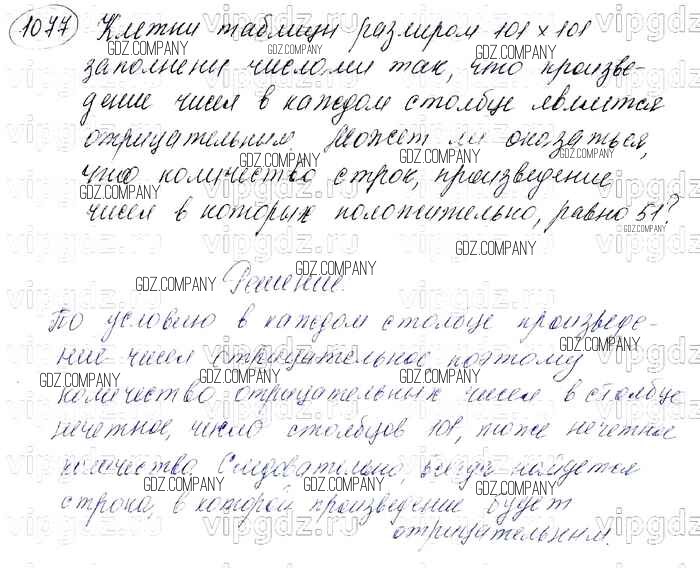 1077 Клетки таблицы размером 101 × 101
заполнены числами так, что произве-
дение чисел в каждом столбце является
отрицательным Может ли оказаться,
что количество строк, произведение
чисел в которых положительно, равно 51?
Решение.
По условию в каждом столбце произведе-
ние чисел отрицательное поэтому
количество отрицательных чисел в столбце
нечетное, число столбцов 101, тоже нечетное
количество. Следовательно, всегда найдется
строка, в которой произведение будет
отрицательным.
GDZ.COMPANY
vipgdz.ru